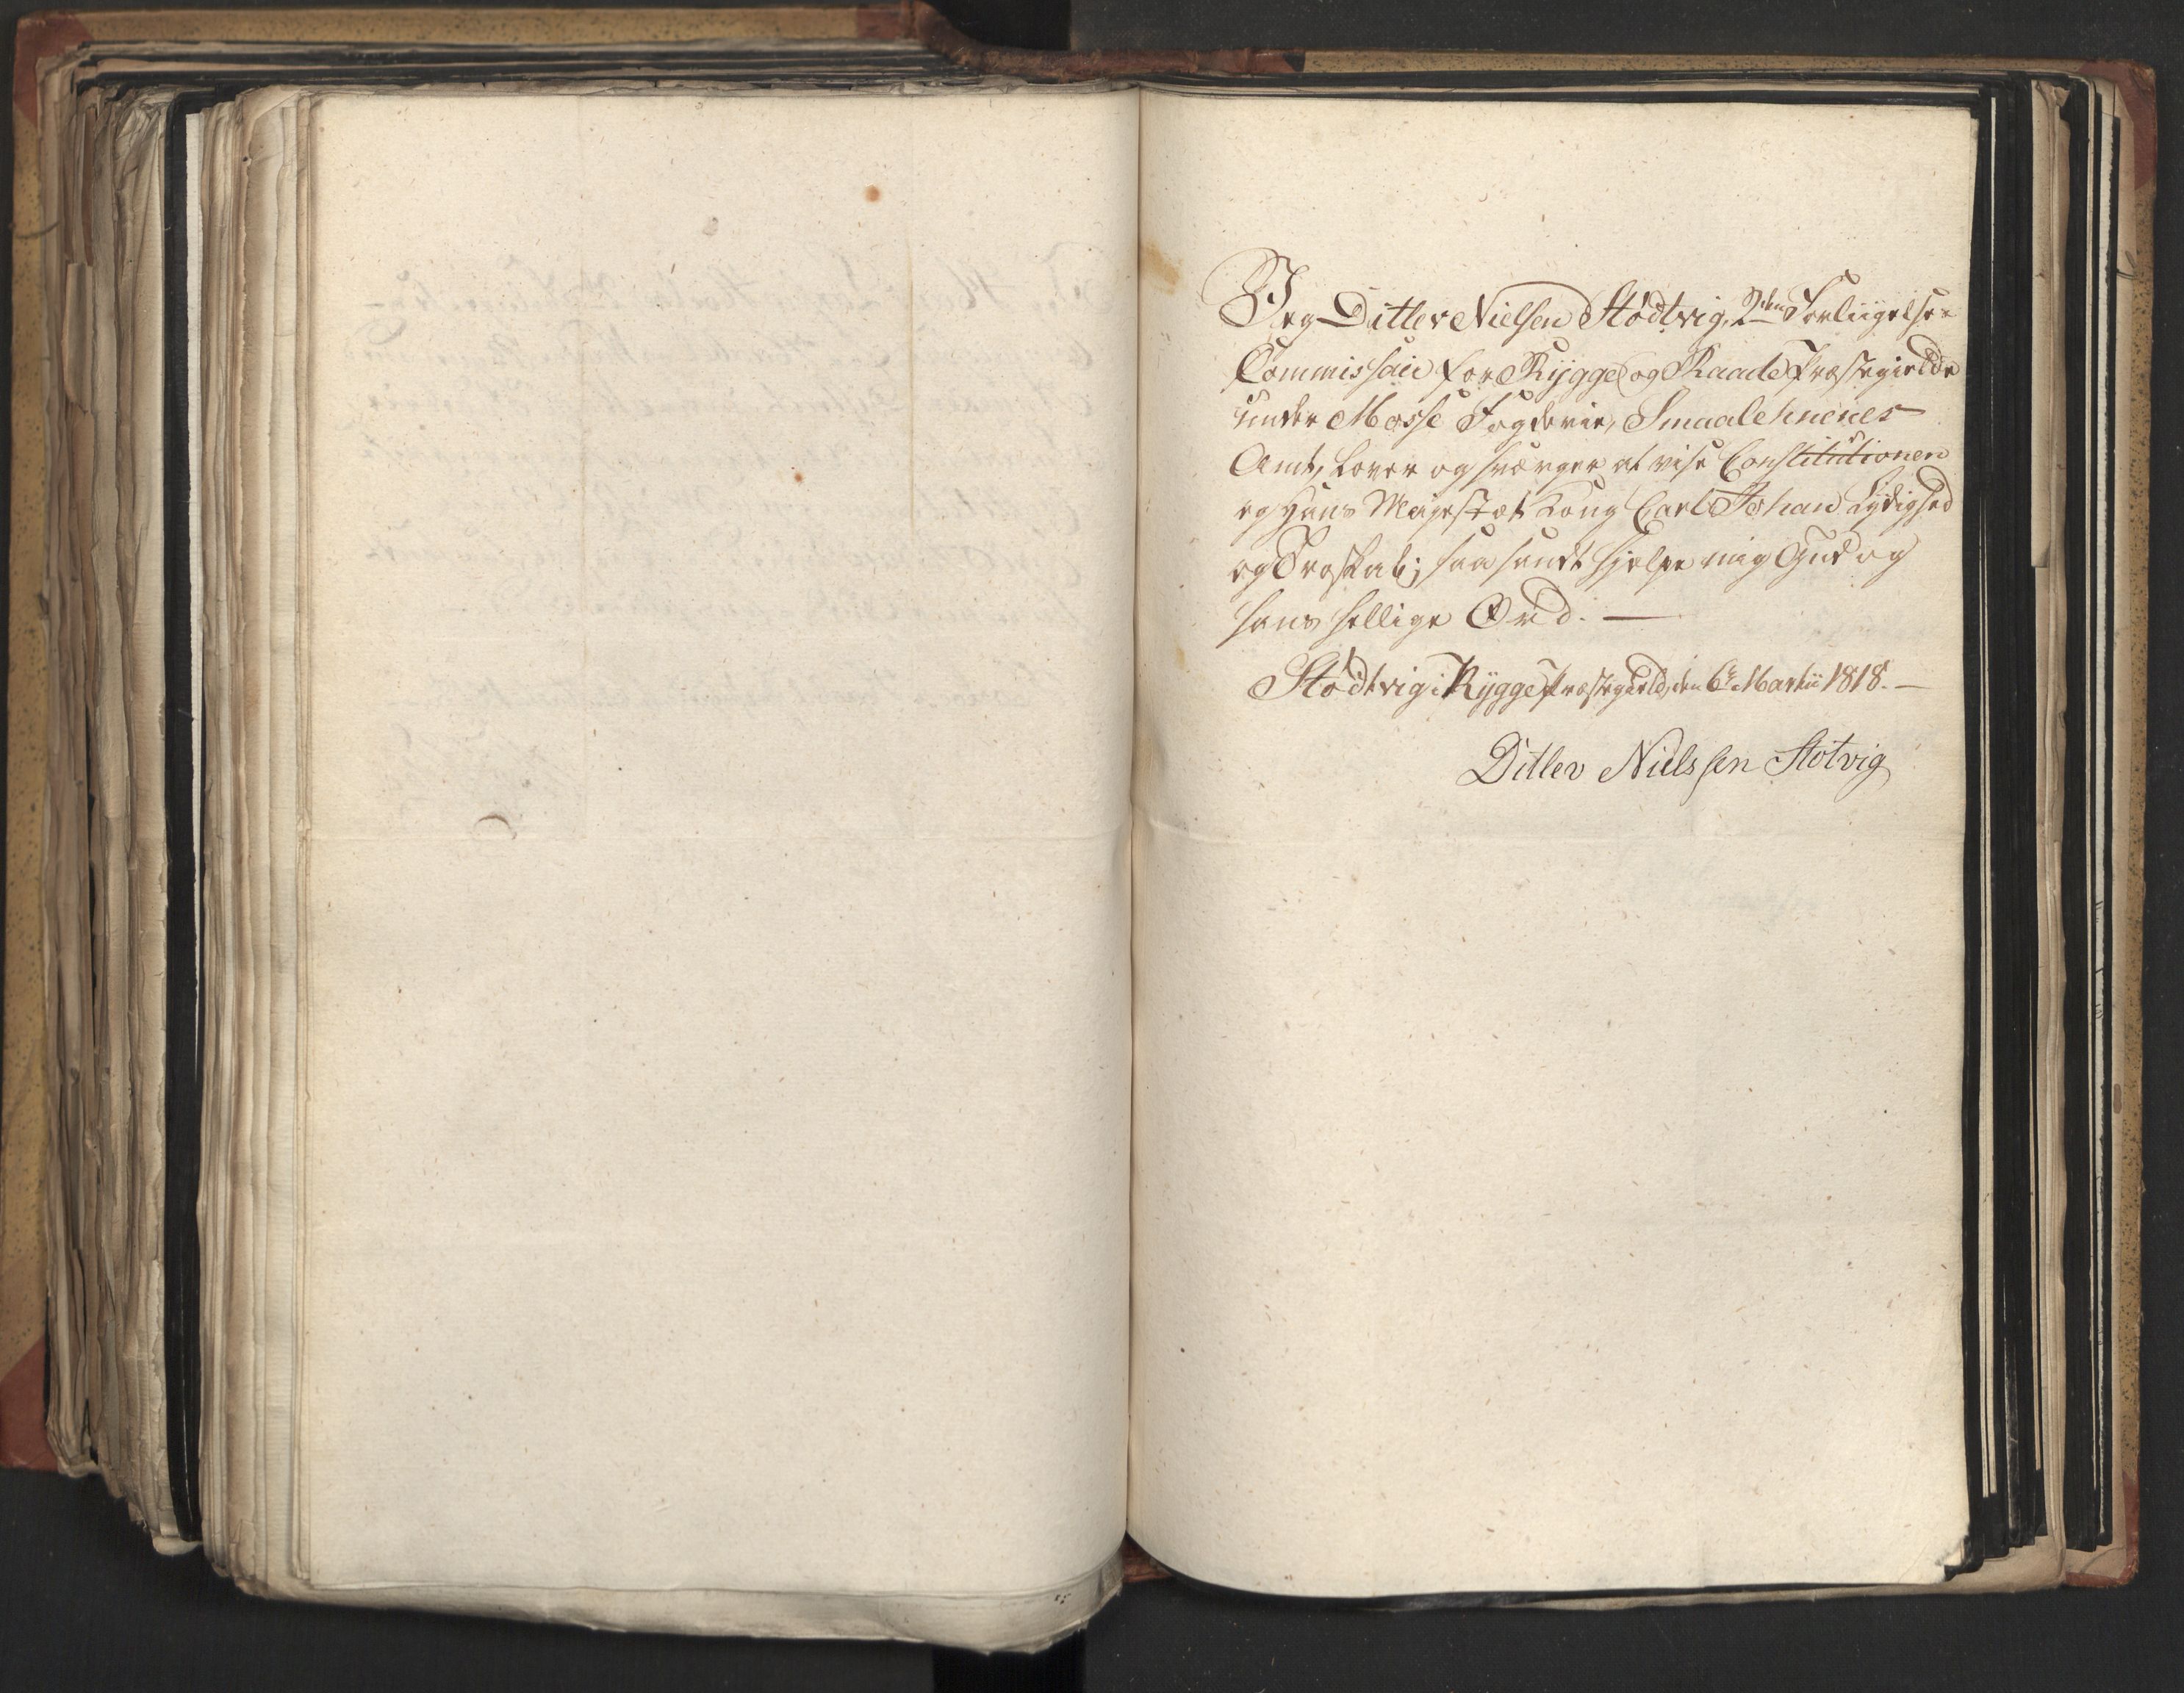 Jeg Ditlev Nielsen Stødtvig, 2den Forliigelses-
Commissair for Rygge og Raade Præstegielde
under Mosse Fogderie, Smaalehnenes
Amt, lover og sværger at vise Constitutionen
og Hans Majestæt Kong Carl Johan Lydighed
og Troskab; saa sandt hjelpe mig Gud og
hans hellige Ord. —
Stødtvig i Rygge Præstegield, den 6te Martii 1818. —
Ditlev Nielssen Stotvig